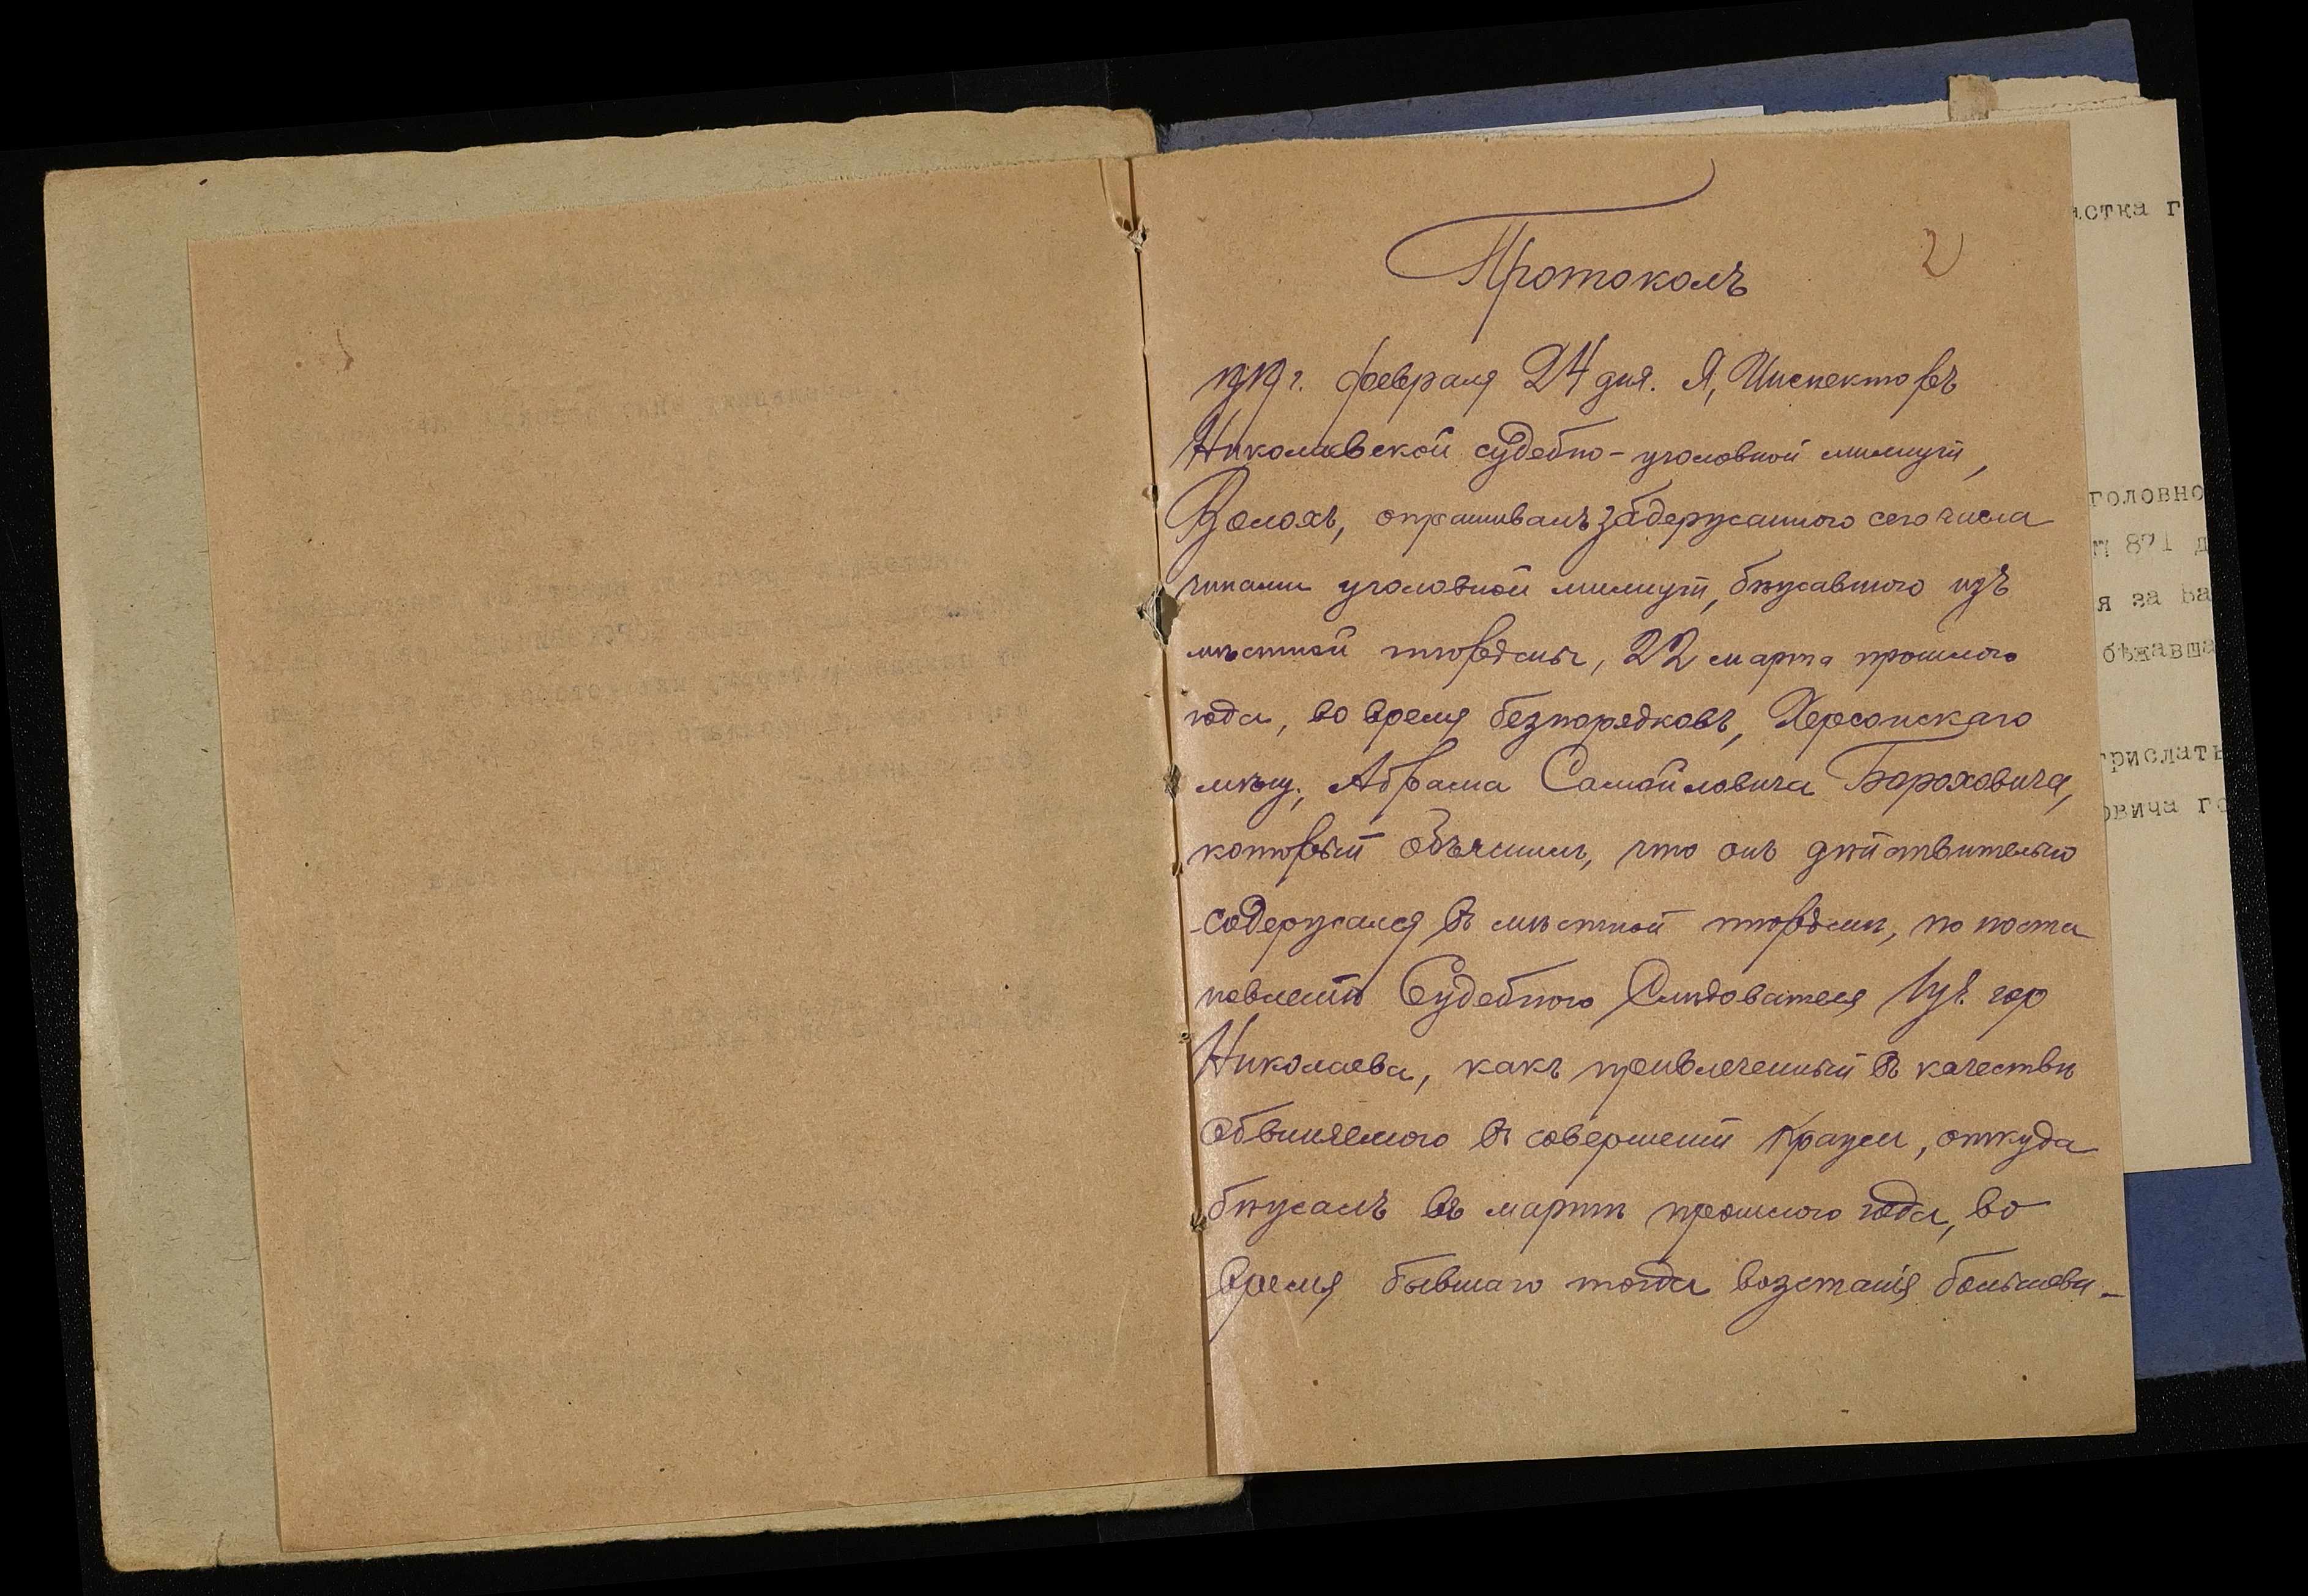 2
Протоколъ
1919 г. февраля 24 дня. Я, Инспекторъ
Николаевской судебно-уголовной милиціи,
Волохъ, опрашивалъ задержаннаго сего числа
чинами уголовной милиціи, бѣжавшаго изъ
мѣстной тюрьмы, 22 марта прошлаго
года, во время безпорядковъ, Херсонскаго
мѣщ., Абрама Самойловича Бороховича,
который объяснилъ, что онъ дѣйствительно
содержался въ мѣстной тюрьмѣ, по поста
новленію Судебнаго Слѣдователя 1 уч. гор
Николаева, какъ привлеченный въ качествѣ
обвиняемаго въ совершеніи кражи, откуда
бѣжалъ въ мартѣ прошлаго года, во
время бывшаго тогда возстанія большеви-
астка г
головно
871 д
я за
бѣжавша
прислать
овича го